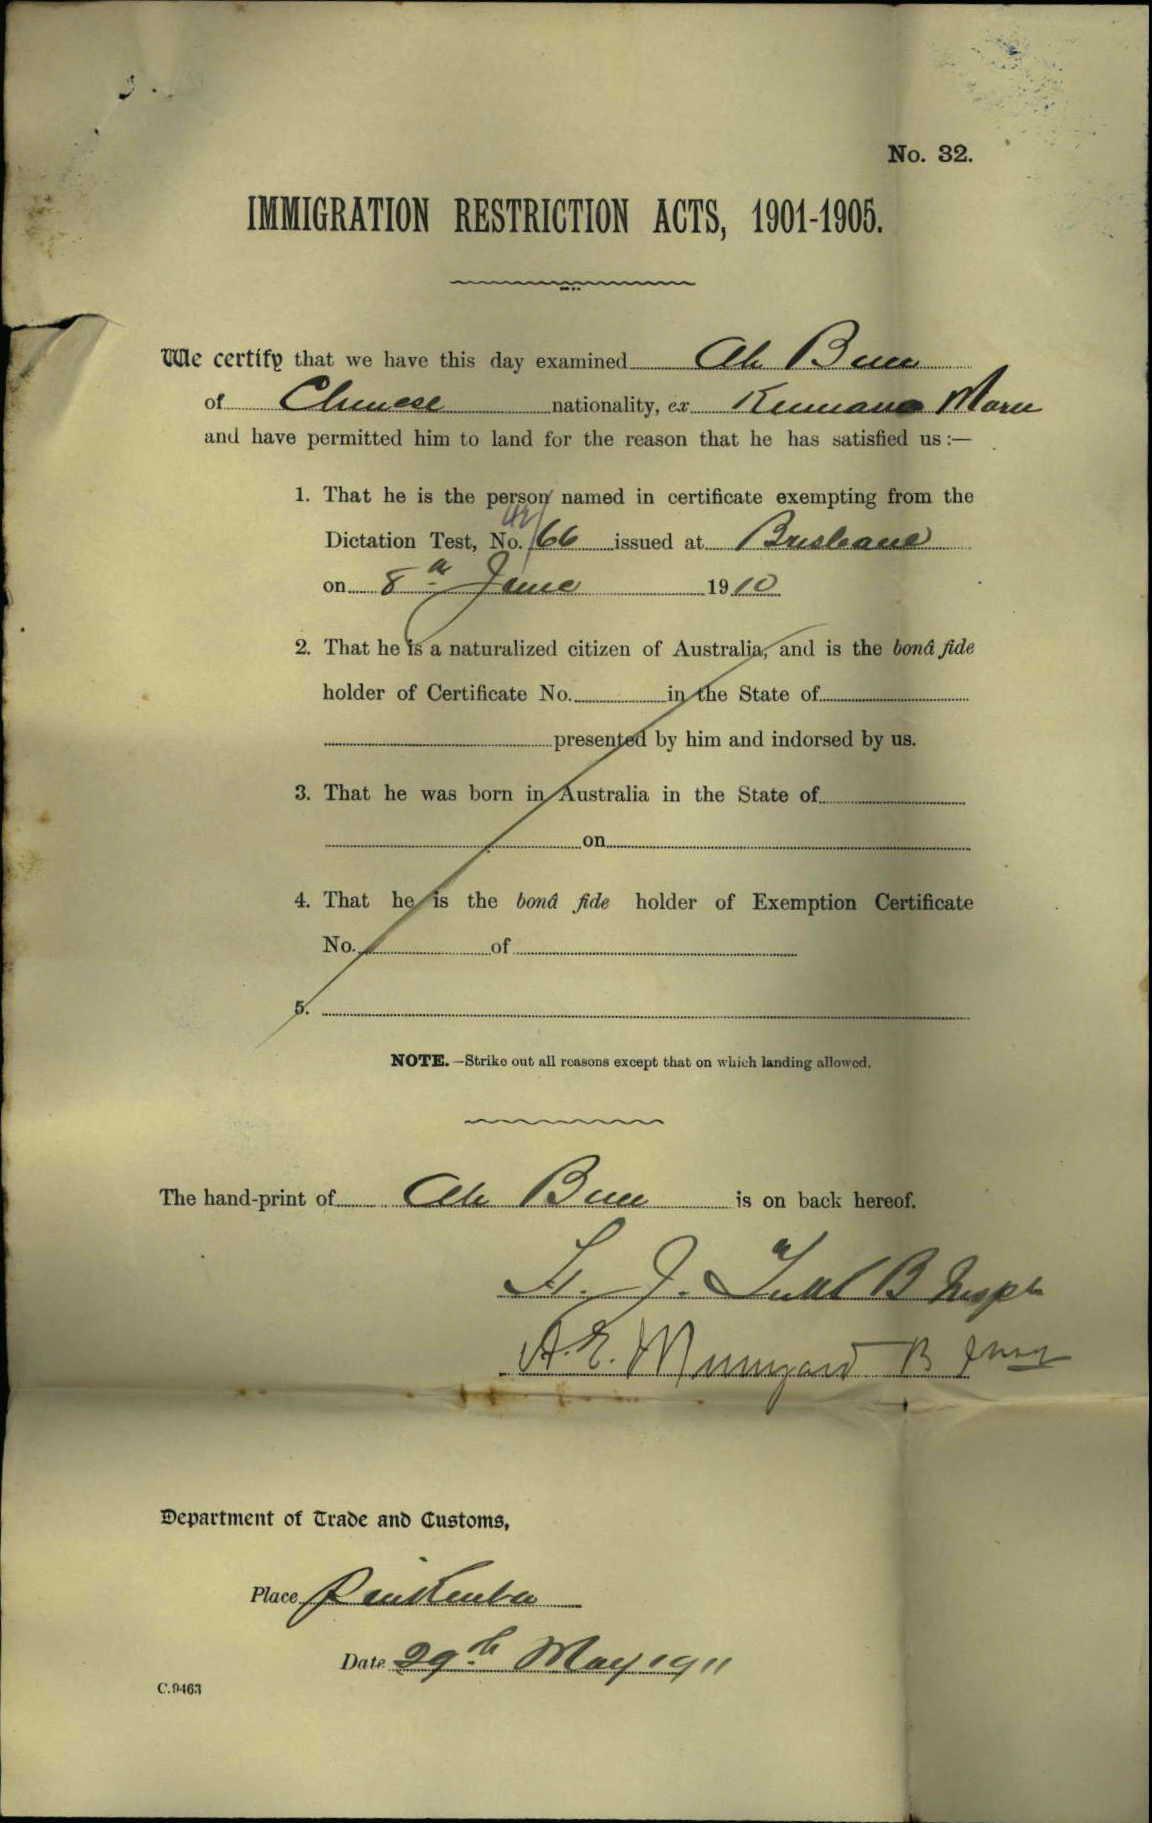 No. 32.
IMMIGRATION RESTRICTION ACTS, 1901-1905.
We certify that we have this day examined Ah Bun
of Chinese nationality, ex Kumano Maru
and have permitted him to land for the reason that he has satisfied us :—
1. That he is the person named in certificate exempting from the
Dictation Test, No. 66 issued at Brisbane
on 8th June 1910
2. That he is a naturalized citizen of Australia, and is the bonâ fide
holder of Certificate No. in the State of
presented by him and indorsed by us.
3. That he was born in Australia in the State of
on
4. That he is the bonâ fide holder of Exemption Certificate
No. of
5.
NOTE.—Strike out all reasons except that on which landing allowed.
The hand-print of Ah Bun is on back hereof.
J. B
A. E. B
Department of Trade and Customs,
Place Pinkenba
Date 29th May 1911
C.9463